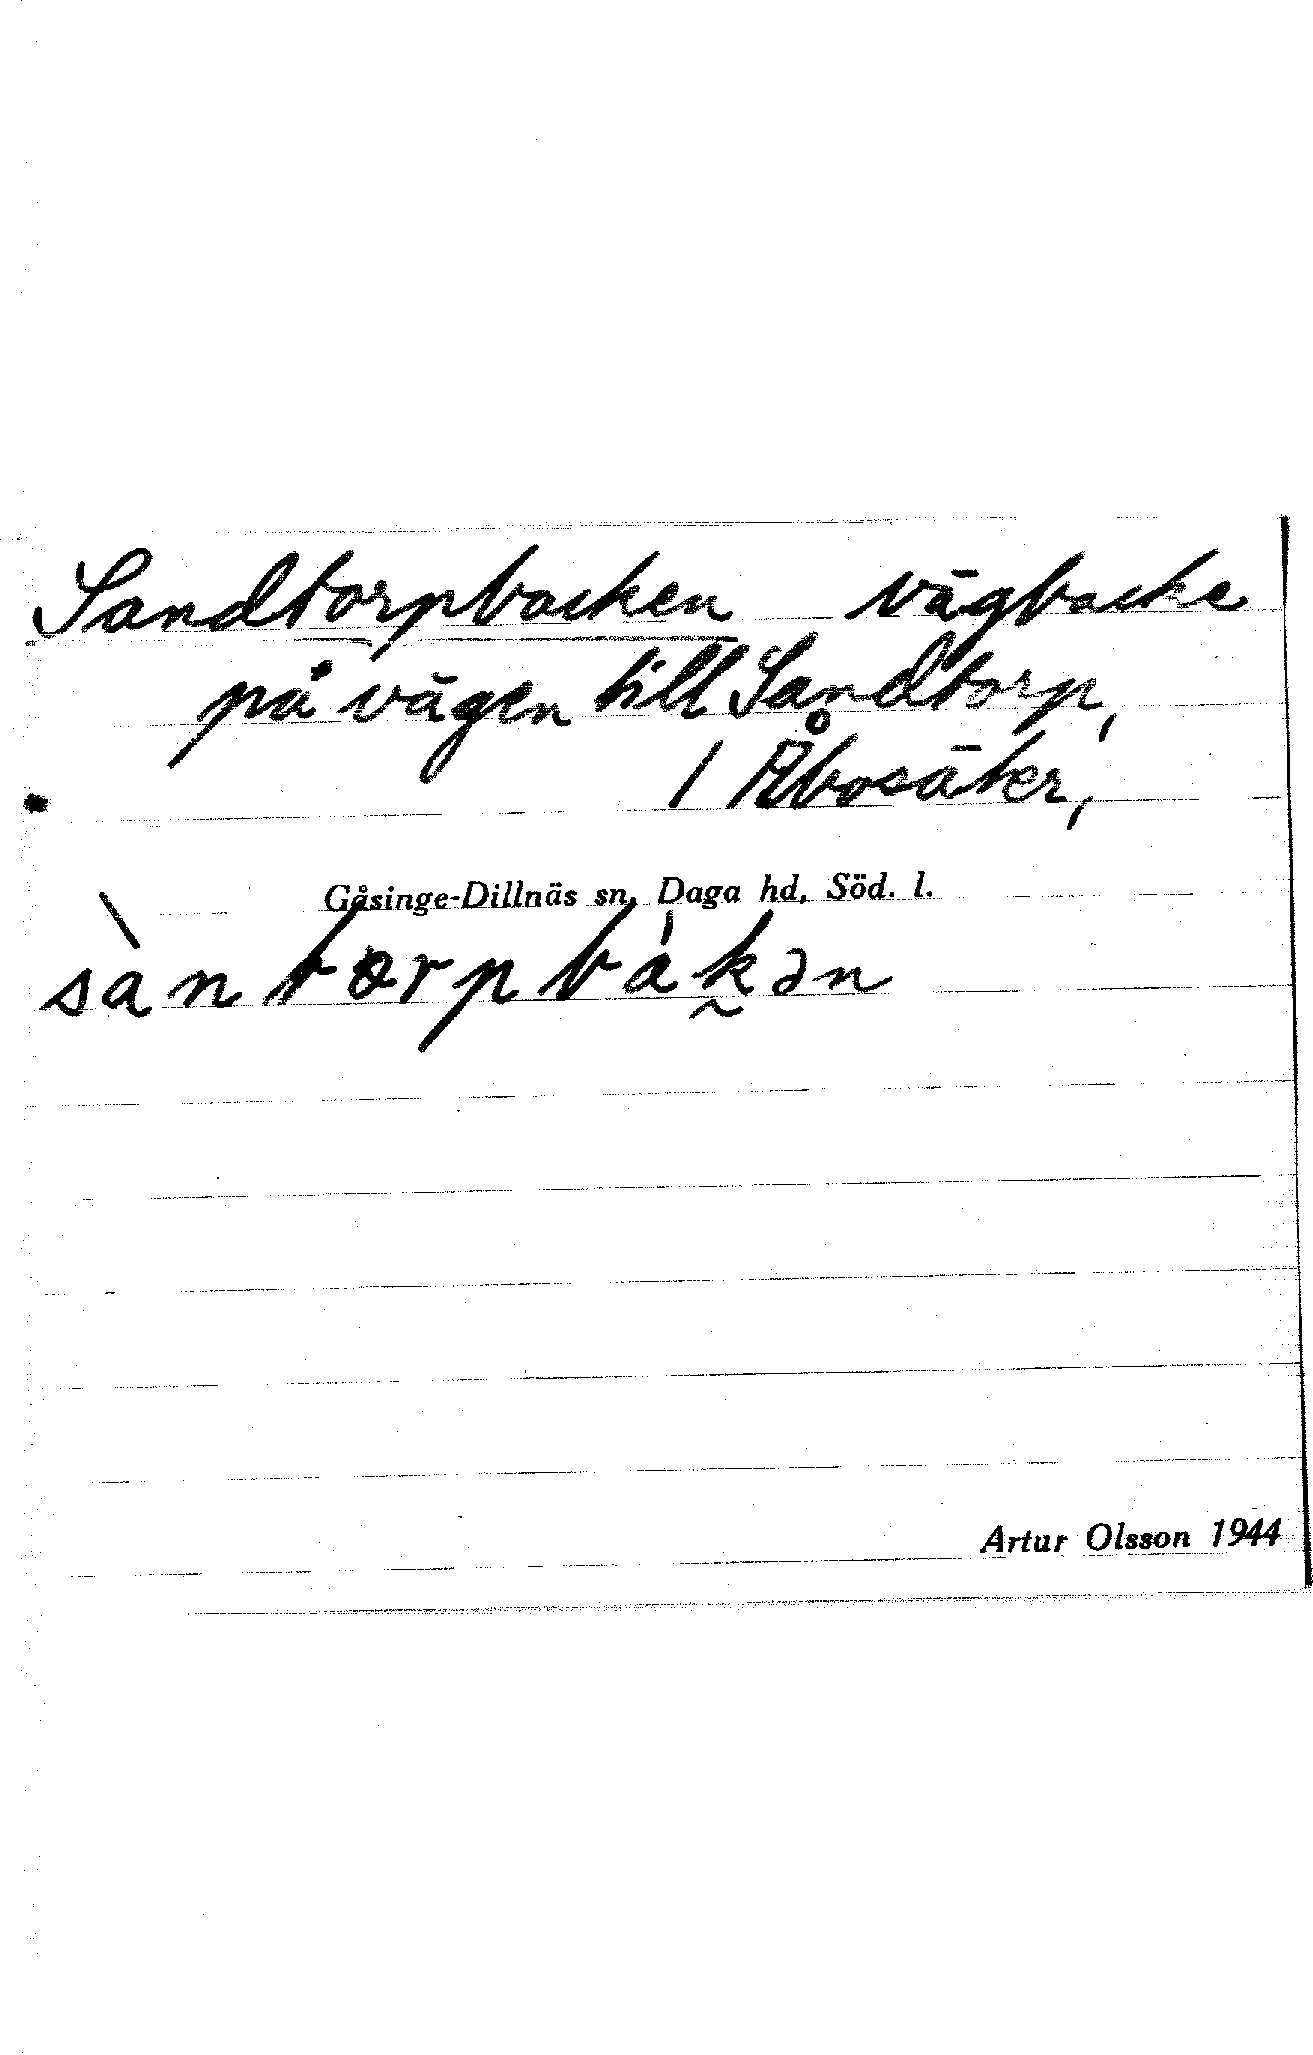 Sandtorpbacken vägbacke
på vägen till Sandtorp,
/ Åbosäter,
Gåsinge-Dillnäs sn, Daga hd, Söd. l.
sàntorpbákən
Artur Olsson 1944